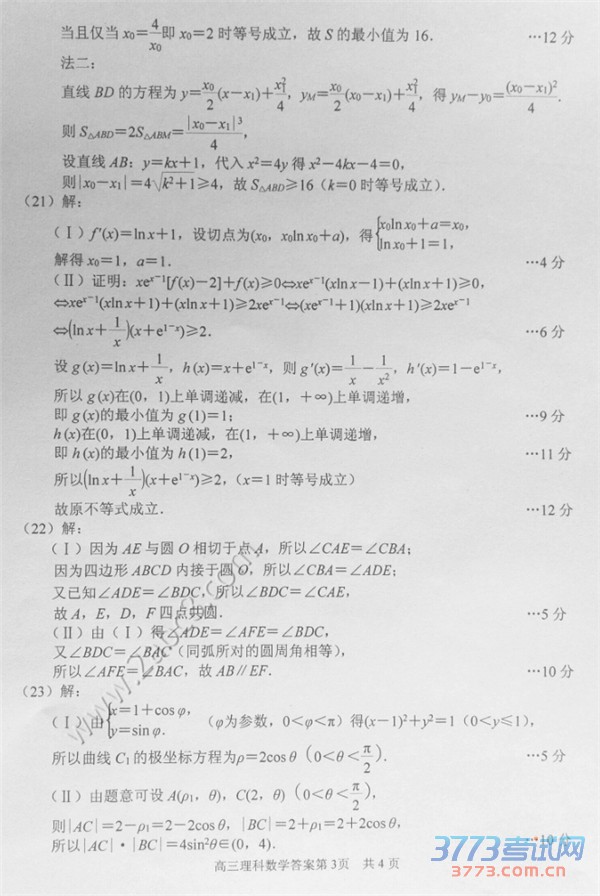 当且仅当 x₀=4/x₀ 即 x₀=2 时等号成立，故 S 的最小值为 16． …12 分
法二：
直线 BD 的方程为 y=x₀/2(x-x₁)+x₁²/4，y_M=x₀/2(x₀-x₁)+x₁²/4，得 y_M-y₀=(x₀-x₁)²/4．
则 S△ABD=2S△ABM=|x₀-x₁|³/4，
设直线 AB：y=kx+1，代入 x²=4y 得 x²-4kx-4=0，
则|x₀-x₁|=4√(k²+1)≥4，故 S△ABD≥16（k=0 时等号成立）．
（21）解：
（Ⅰ）f′(x)=ln x+1，设切点为(x₀，x₀ln x₀+a)，得{x₀ln x₀+a=x₀，
ln x₀+1=1，
解得 x₀=1，a=1． …4 分
（Ⅱ）证明：xeˣ⁻¹[f(x)-2]+f(x)≥0⇔xeˣ⁻¹(xln x-1)+(xln x+1)≥0，
⇔xeˣ⁻¹(xln x+1)+(xln x+1)≥2xeˣ⁻¹⇔(xeˣ⁻¹+1)(xln x+1)≥2xeˣ⁻¹
⇔(ln x+1/x)(x+e¹⁻ˣ)≥2． …6 分
设 g(x)=ln x+1/x，h(x)=x+e¹⁻ˣ，则 g′(x)=1/x-1/x²，h′(x)=1-e¹⁻ˣ，
所以 g(x)在(0，1)上单调递减，在(1，+∞)上单调递增，
即 g(x)的最小值为 g(1)=1； …9 分
h(x)在(0，1)上单调递减，在(1，+∞)上单调递增，
即 h(x)的最小值为 h(1)=2， …11 分
所以(ln x+1/x)(x+e¹⁻ˣ)≥2，（x=1 时等号成立）
故原不等式成立． …12 分
（22）解：
（Ⅰ）因为 AE 与圆 O 相切于点 A，所以∠CAE=∠CBA；
因为四边形 ABCD 内接于圆 O，所以∠CBA=∠ADE；
又已知∠ADE=∠BDC，所以∠BDC=∠CAE，
故 A，E，D，F 四点共圆． …5 分
（Ⅱ）由（Ⅰ）得∠ADE=∠AFE=∠BDC，
又∠BDC=∠BAC（同弧所对的圆周角相等），
所以∠AFE=∠BAC，故 AB∥EF． …10 分
（23）解：
（Ⅰ）由{x=1+cos φ，
y=sin φ． （φ为参数，0<φ<π）得(x-1)²+y²=1（0<y≤1），
所以曲线 C₁ 的极坐标方程为ρ=2cos θ（0<θ<π/2）． …5 分
（Ⅱ）由题意可设 A(ρ₁，θ)，C(2，θ)（0<θ<π/2），
则|AC|=2-ρ₁=2-2cos θ，|BC|=2+ρ₁=2+2cos θ，
所以|AC|·|BC|=4sin²θ∈(0，4)． …10 分
高三理科数学答案第 3页 共 4 页
3773考试网
www.3773.com